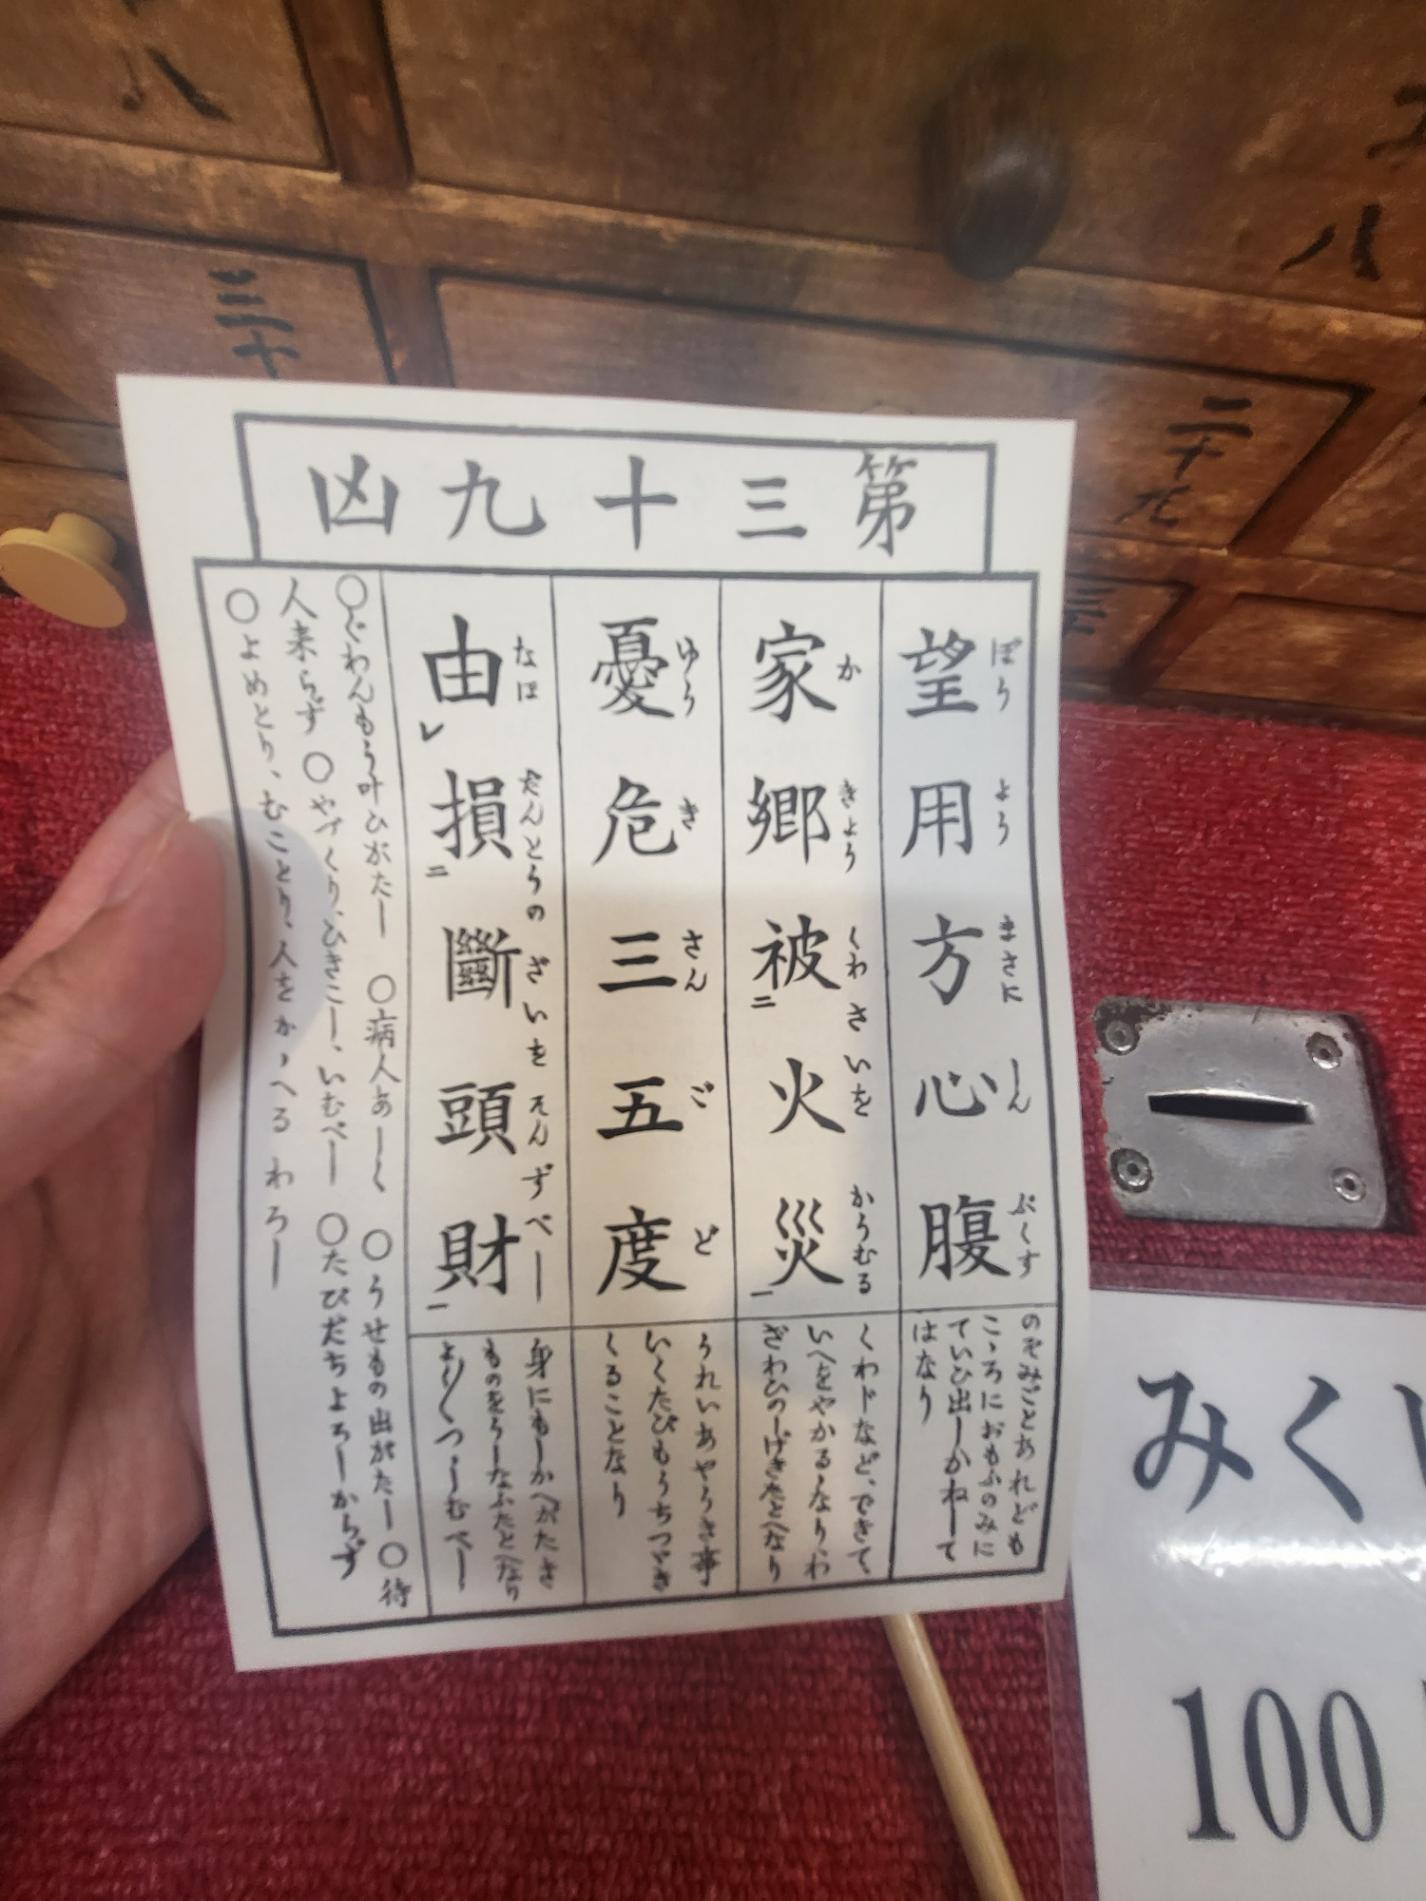 第三十九凶
望用方心腹
ぼう よう まさに しん ぷくす
のぞみごとあれども
こゝろにおもふのみに
ていひ出しかねして
はなり
家郷被二火災一
か きょう くわさいを かうむる
くわじなど、できて
いへをやかるゝなり、わ
ざわひのしげきたとへなり
憂危三五度
ゆう き さん ご ど
うれいあやうき事
いくたびもうちつゞき
くることなり
由レ損二斷頭財一
なほ だんとうの ざいを そんずべし
身にもしかへがたき
ものをうしなふたとへなり
よく〱つゝしむべし
○ぐわんもう叶ひがたし ○病人あしく ○うせもの出がたし ○待
人来らず ○やづくり、ひきこし、いむべし ○たびだちよろしからず
○よめとり、むことり、人をかゝへる わろし
三十
二十九
八
みく
100